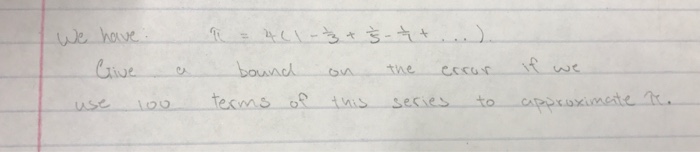 We have: π = 4(1 - 1/3 + 1/5 - 1/7 + ...).
Give a bound on the error if we
use 100 terms of this series to approximate π.